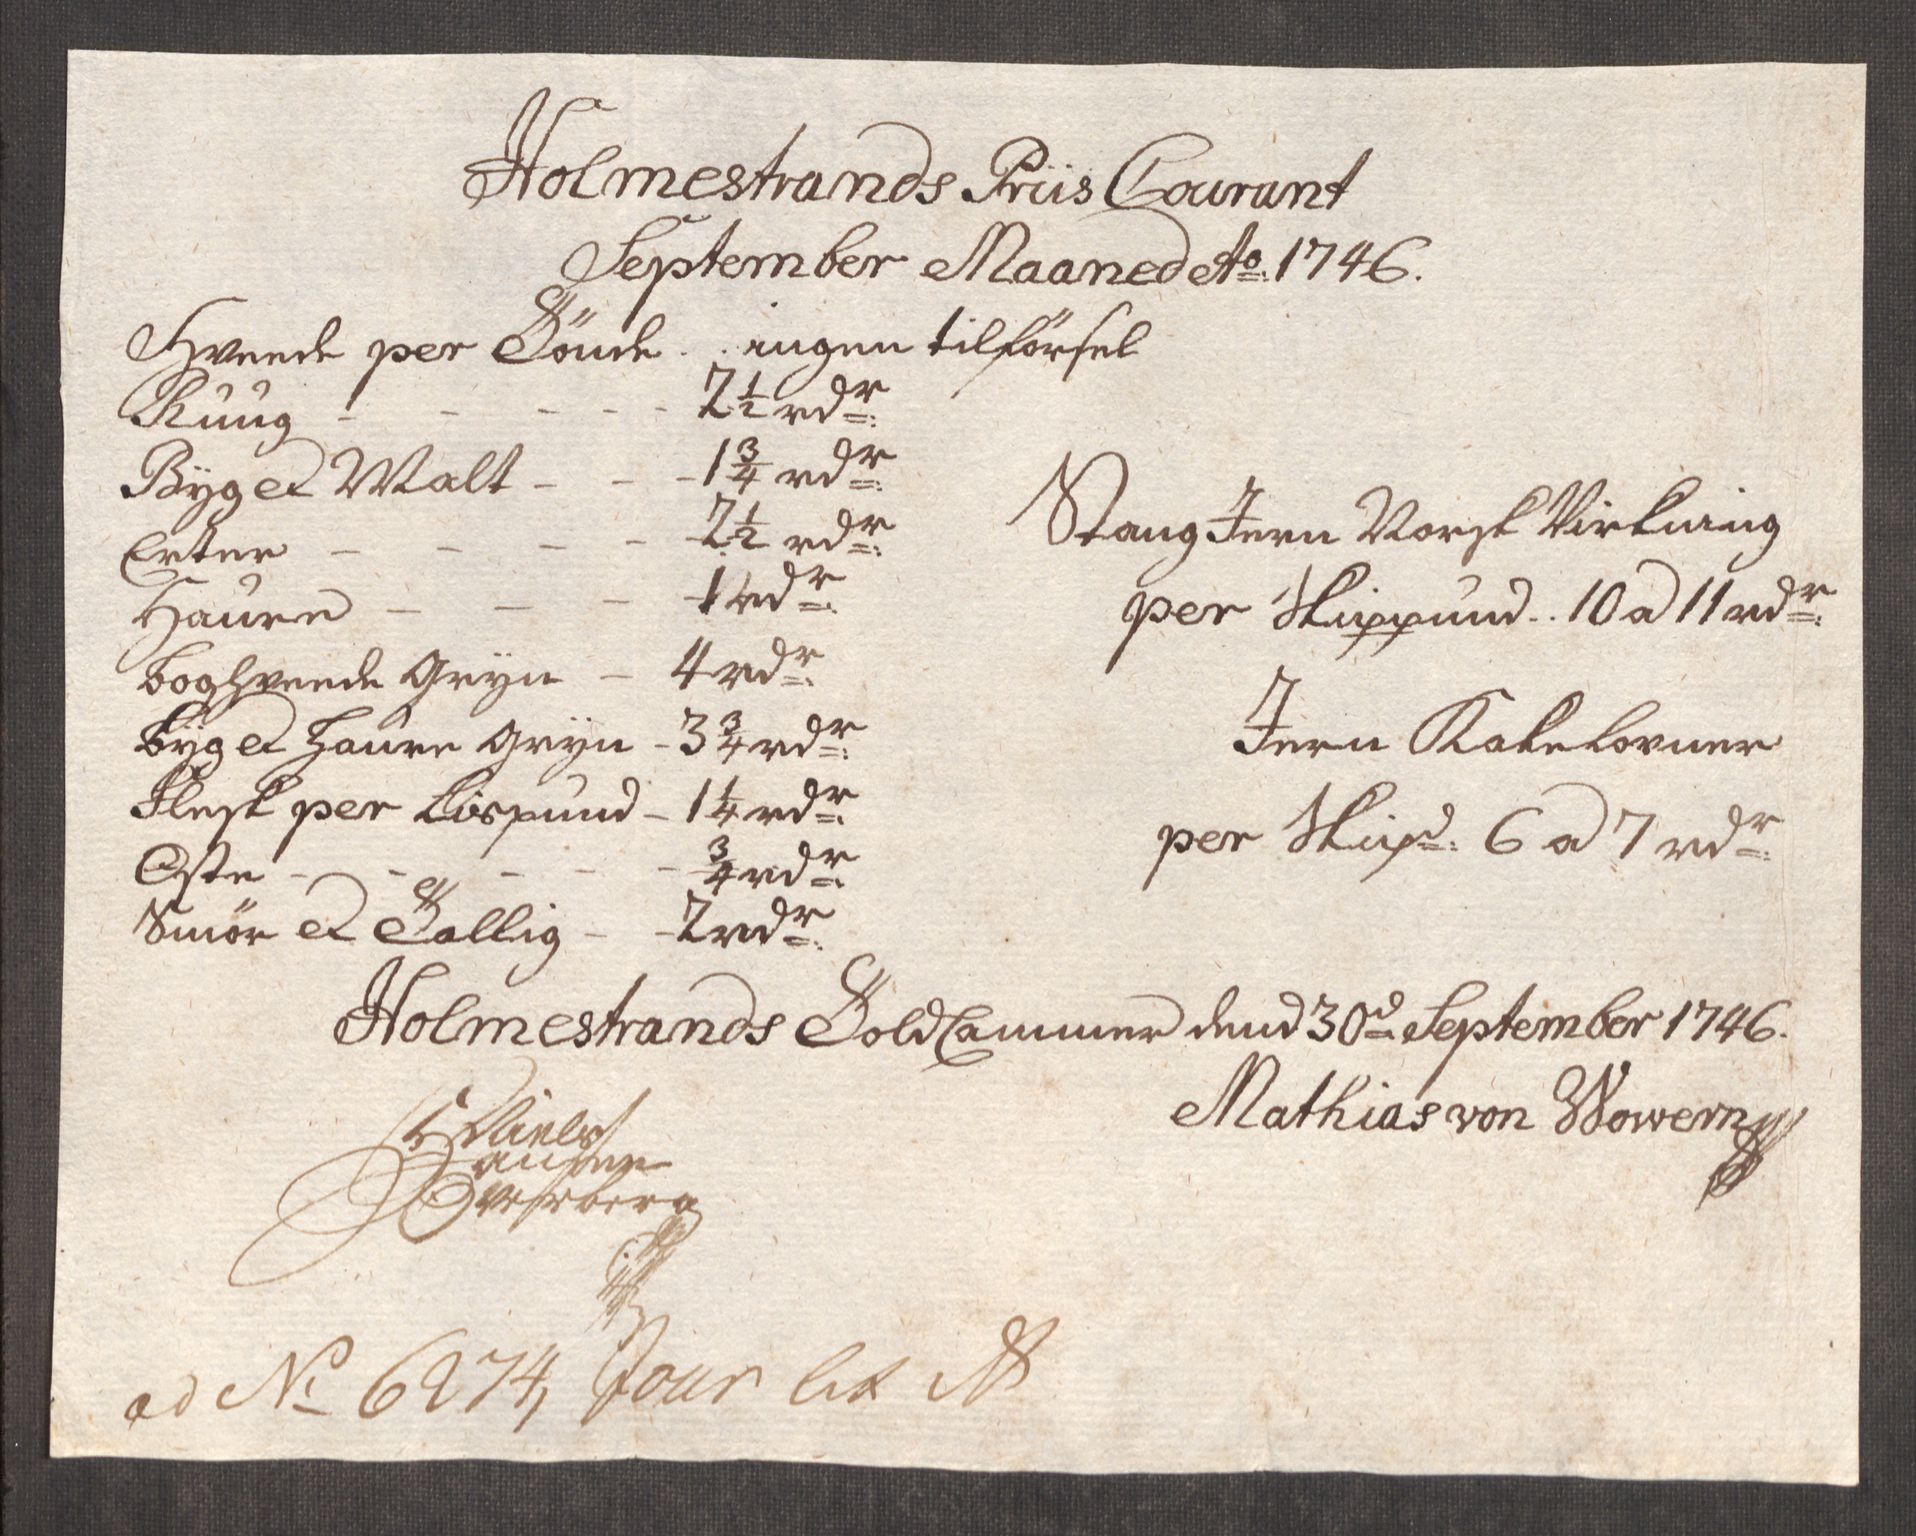 Holmestrands Priis Courant
September Maaned Ao. 1746.
Hveede per Tönde . . ingen tilförsel
Ruug - - - - - 2 1/2 rdr.
Byg et Malt - - - 1 3/4 rdr.
Erter - - - - - 2 1/2 rdr.
Haure - - - - 1 rdr.
Boghveede Gryn - 4 rdr.
Byg et Haure Gryn - 3 3/4 rdr.
Flesk per Lispund - 1 1/4 rdr.
Oste - - - - - 3/4 rdr.
Smör et Tallig - - 2 rdr.
Stang Jern Norsk Virkning
per Skippund . . 10 a 11 rdr.
Jern Kakelovner
per Skipd. 6 a 7 rdr.
Holmestrands Told Cammer dend 30d September 1746.
Mathias von Wowern
Niels
Hansen
Overberg
ad No 6274, Jour lit